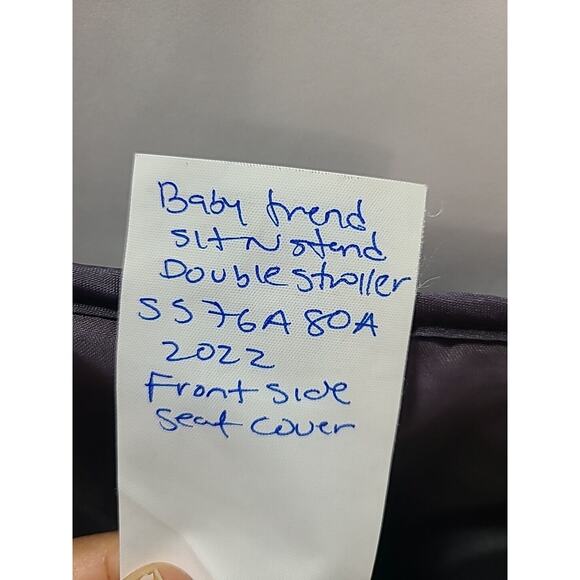 Baby trend
Sit N stand
Double stroller
SS76A80A
2022
Front side
seat cover